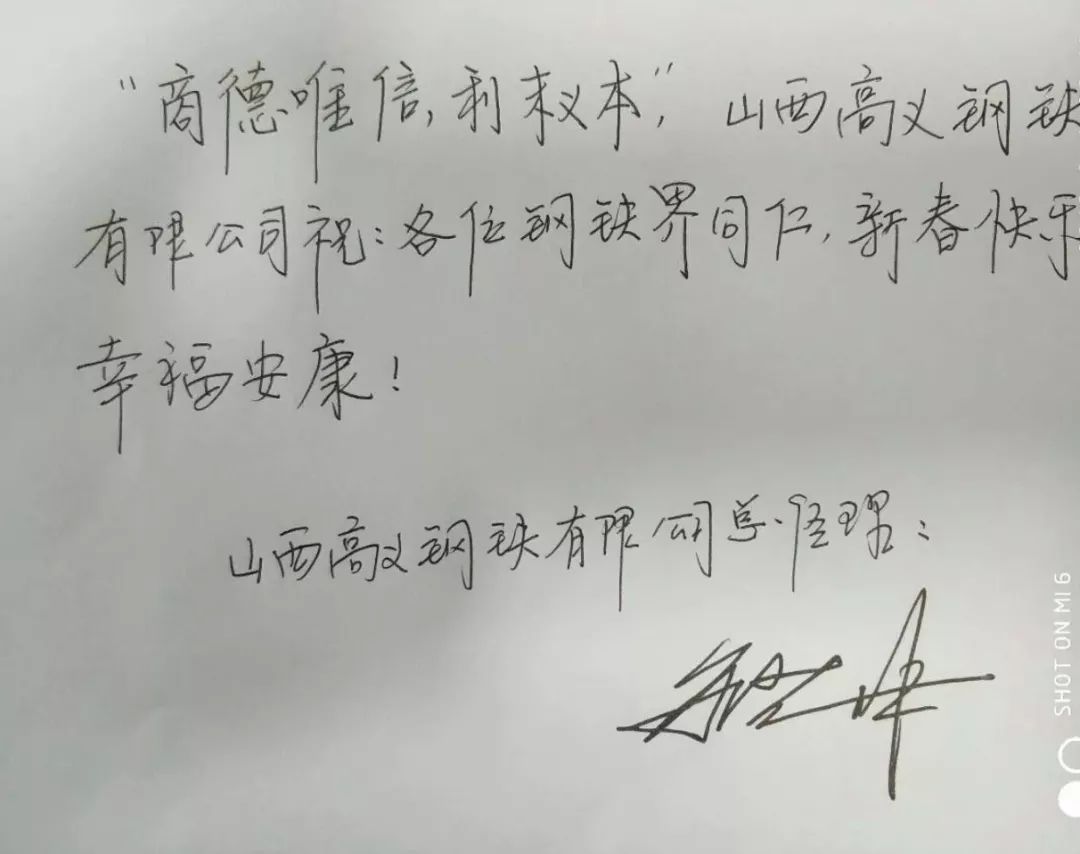 “商德唯信,利末义本”,山西高义钢铁
有限公司祝:各位钢铁界同仁,新春快乐
幸福安康!
山西高义钢铁有限公司总经理:
SHOT ON MI 6